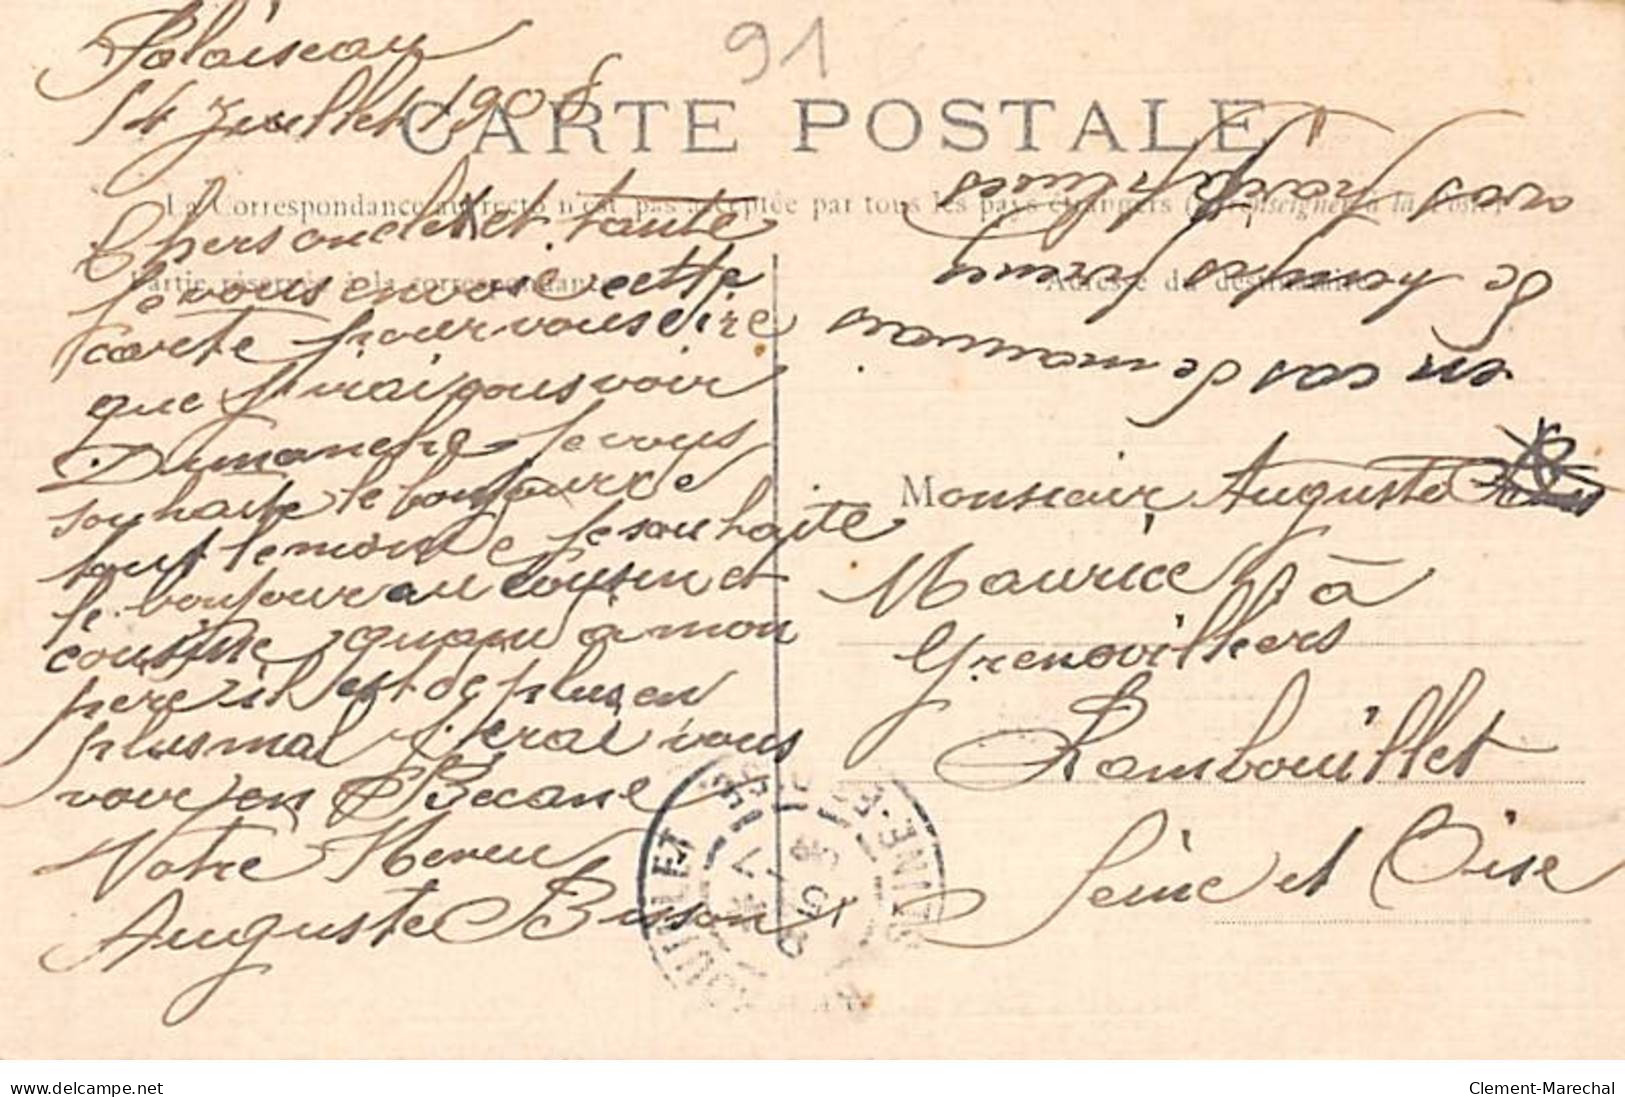 91
Palaiseau
14 Juillet 1908
CARTE POSTALE
La Correspondance au recto n'est pas acceptée par tous les pays étrangers (Renseignez à la Poste)
Partie réservée à la correspondance
Adresse du destinataire
Chers oncle et tante
Je vous envoie cette
carte pour vous dire
que j'irai vous voir
Dimanche Je vous
souhaite le bonjour ce
tout le monde Je souhaite
le bonjour au Cousin et
cousine quand à mon
père il est de plus en
plus mal j'irai vous
voir en Bécane
Votre Neveu
Auguste Bisson
vos
de
en cas de mauvais
Monsieur Auguste
Maurice à
Grenovilliers
Rambouillet
Seine et Oise
SEINE-
www.delcampe.net
Clement-Marechal